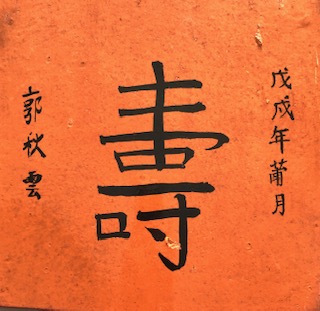 戊戌年莆月
壽
郭秋雲